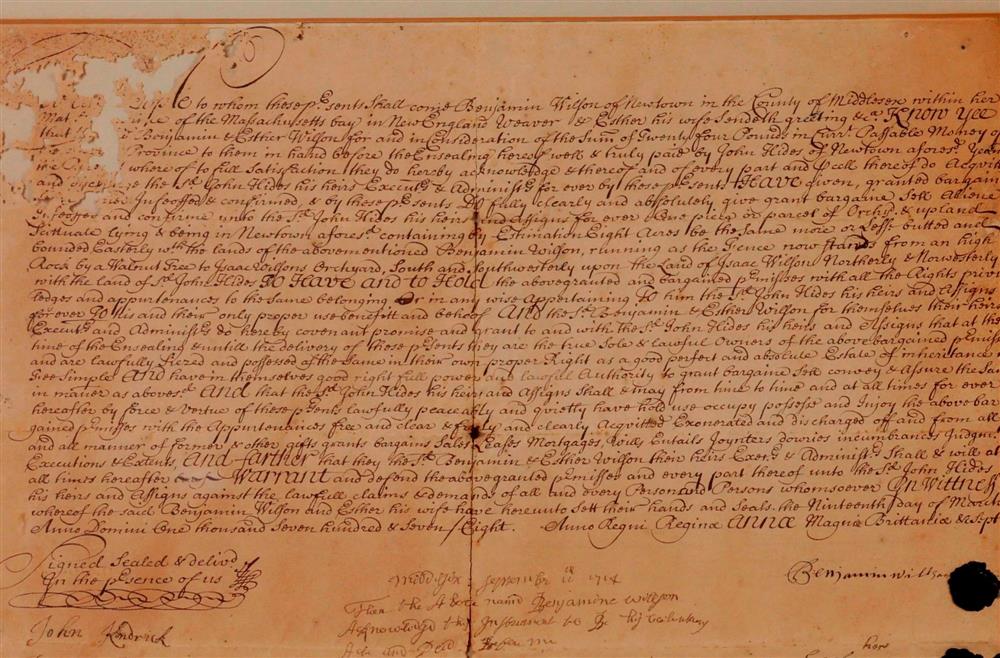 to whom these p.sents Shall come Benjamin Wilson of Newtown in the County of Middlesex within her
of the Massachusetts bay in New England Weaver & Esther his wife Sendeth greeting &c.a Know yee
Benjamin & Esther Wilson for and in Consideration of the Sum of Twenty four Pounds in Curr.t Passable Money of
Province to them in hand before the Ensealing hereof well & truly paid by John Hides of Newtown afores.d
where of to full Satisfaction they do hereby acknowledge & thereof and of every part and p.cell thereof do Acquitt
and the s.d John Hides his heirs Execut.rs & Administ.rs for ever by these p.sents Have given, granted bargain
Infeoffed & confirmed, & by these p.sents Do fully clearly and absolutely give grant bargaine Sell Aliene
Infeoffe and confirme unto the s.d John Hides his heirs and Assigns for ever One piece or parcel of Orch.d & upland
Scittuate lying & being in Newtown afores.d containing by Estimation Eight Acres be the Same more or Lesse butted and
bounded Easterly w.th the lands of the abovementioned Benjamin Wilson, running as the Fence now stands from an high
Rock by a Walnut Tree to Isaac Wilsons Orchyard, South and Southwesterly upon the Land of Isaac Wilson Northerly & Norwesterly
with the Land of s.d John Hides To Have and to Hold the abovegranted and bargained p.misses with all the Rights privi
ledges and appurtenances to the Same belonging Or in any wise Appertaining To him the s.d John Hides his heirs and Assigns
for ever To his and their only proper use benefitt and behoof And the s.d Benjamin & Esther Wilson for themselves their heirs
Execut.rs and Administ.rs do hereby covenant promise and grant to and with the s.d John Hides his heirs and Assigns that at the
time of the Ensealing & untill the delivery of these p.sents they are the true Sole & lawful Owners of the above bargained p.misses
and are lawfully Siezed and possessed of the Same in their own proper Right as a good perfect and absolute Estate of inheritance in
Fee Simple And have in themselves good right full power and lawful Authority to grant bargaine Sell convey & Assure the Same
in maner as aboves.d And that the s.d John Hides his heirs and Assigns Shall & may from time to time and at all times for ever
hereafter by force & Vertue of these p.sents lawfully peaceably and quietly have hold use occupy possesse and Injoy the above bar
gained p.misses with the Appurtenances free and clear & freely and clearly Acquitted Exonerated and discharged off and from all
and all manner of former & other gifts grants bargains Sales Leases Mortgages Wills Entails Joynters dowries incumbrances Judgm
Executions & Extents. And farther that they the s.d Benjamin & Esther Wilson their heirs Exec.rs & Administ.rs Shall & will at
all times hereafter Warrant and defend the abovegranted p.misses and every part thereof unto the s.d John Hides
his heirs and Assigns against the lawfull claims & demands of all and every Person and Persons whomsoever In Wittness
whereof the said Benjamin Wilson and Esther his wife have hereunto sett their hands and Seals. the Ninteenth day of March
Anno Domini One thousand Seven hundred & Seven / Eight. Anno Regni Reginæ Annæ Magnæ Brittaniæ & Sept
Signed Sealed & deliv.d
In the p.sence of us
John Kendrick
Benjamin willson
September 1714
Then the Above named Benjamine Willson
Acknowledged this Instrument to Be his voluntary
Act and Deed Before me
hors